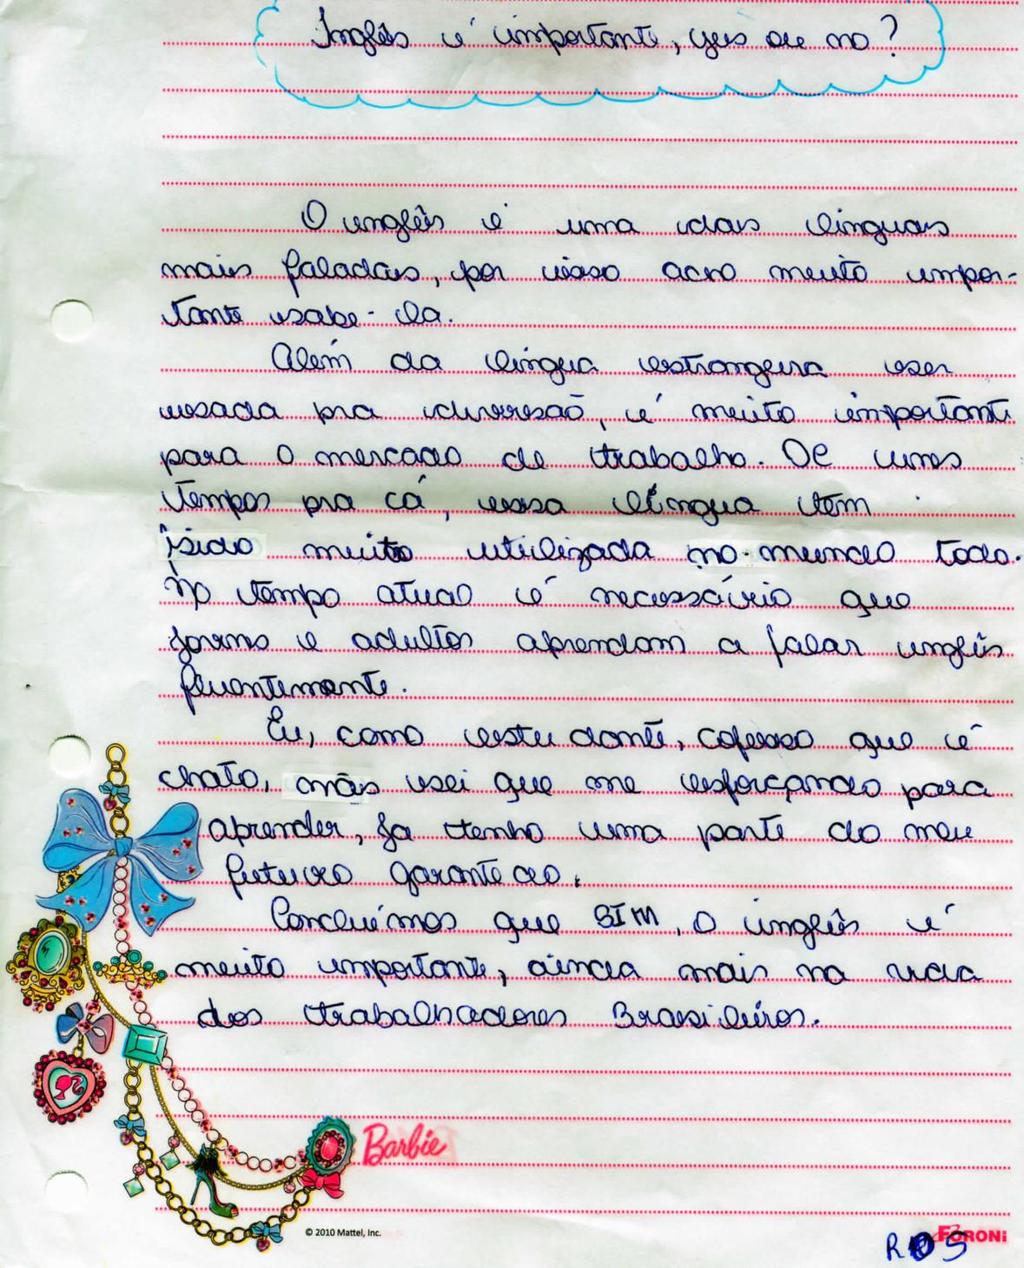 Inglês é importante, yes ou no?
O inglês é uma das línguas
mais faladas, por isso acho muito impor-
tante sabe-la.
Além da língua estrangeira ser
usada pra diversão, é muito importante
para o mercado de trabalho. De uns
tempos pra cá, essa língua tem
sido muito utilizada no mundo todo.
No tempo atual é necessário que
jovens e adultos aprendam a falar inglês
fluentemente.
Eu, como estudante, cofesso que é
chato, mas sei que me esforçando para
aprender, ja tenho uma parte do meu
futuro garantido.
Concluímos que SIM, o inglês é
muito importante, ainda mais na vida
dos trabalhadores Brasileiros.
Barbie
© 2010 Mattel, Inc.
FORONI